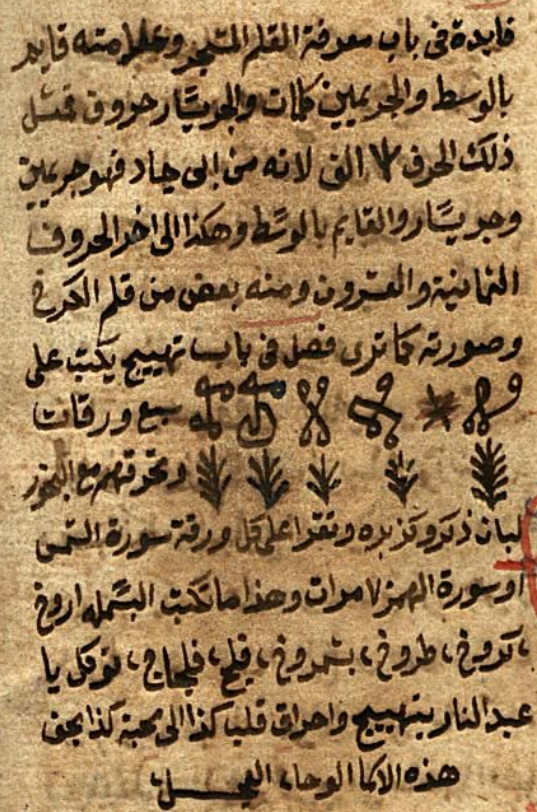 فايدة فى باب معرفة القلم المشجر وعلامته قايم
بالوسط والجر يمين كلمات والجر يسار حروف فمثل
ذلك الحرف الف لانه من ابى جاد فهو جر يمين
وجر يسار والقايم بالوسط وهكذا الى اخر الحروف
الثمانية والعشرون ومنه بعض من قلم الكرخ
وصورته كما ترى فصل فى باب تهييج يكتب على
سبع ورقات
وتحرقهم مع البخور
لبان ذكر وكزبره وتقرا على كل ورقة سورة الشمس
او سورة الهمز ٧ مرات وهذا ما تكتب البسمله اروخ
، كروخ ، طروخ ، بشروخ ، فلج ، فلجاج ، توكل يا
عبد النار بتهييج واحراق قلب كذا الى محبة كذا بحق
هذه الاسما الوحا ، العجل ،